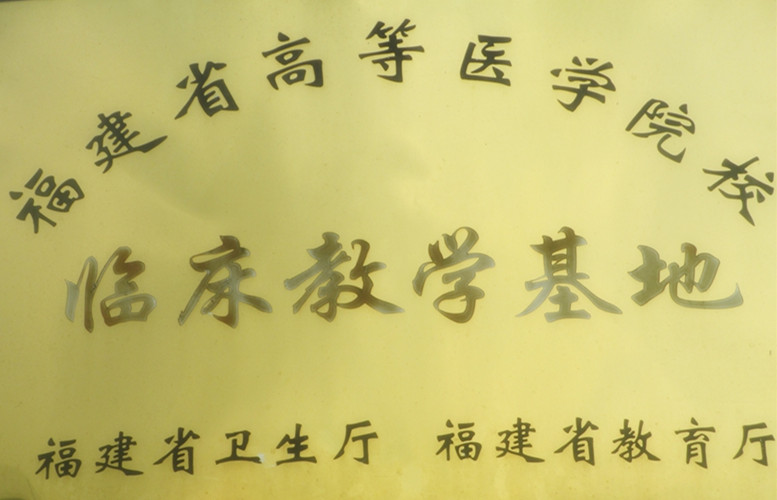 福建省高等医学院校
临床教学基地
福建省卫生厅 福建省教育厅